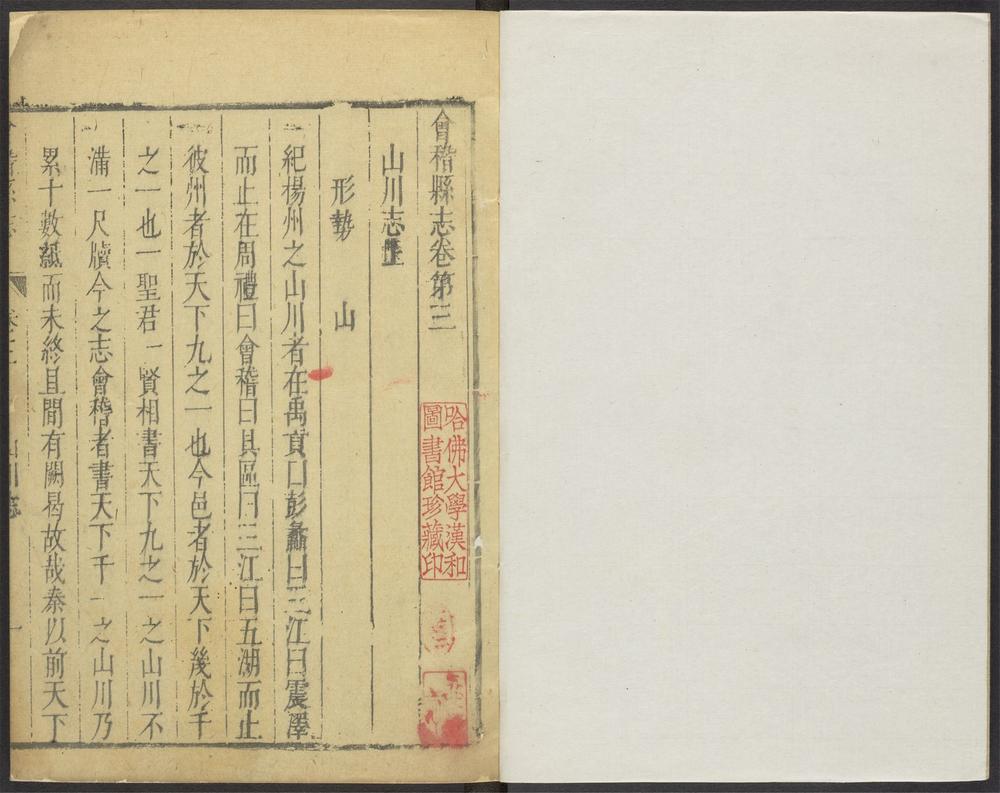 會稽縣志卷第三
山川志
形勢 山
紀楊州之山川者在禹貢曰彭蠡曰三江曰震澤
而止在周禮曰會稽曰具區曰三江曰五湖而止
彼州者於天下九之一也今邑者於天下幾於千
之一也一聖君一賢相書天下九之一之山川不
滿一尺牘今之志會稽者書天下千一之山川乃
累十數紙而未終且間有闕曷故哉秦以前天下
山川志
一
哈佛大學漢和
圖書館珍藏印